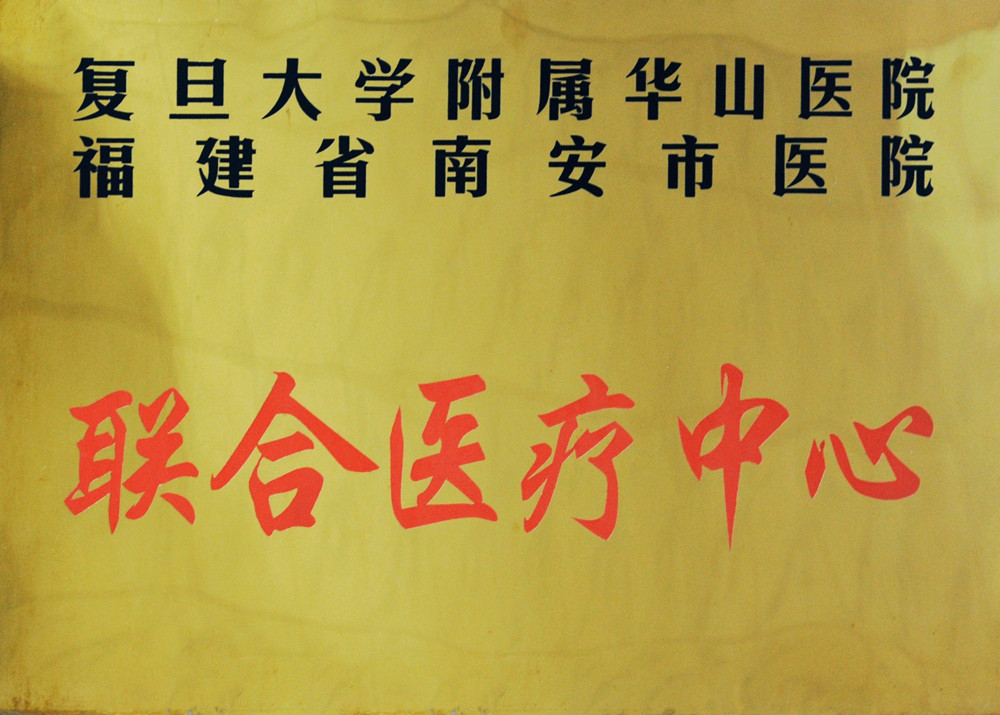 复旦大学附属华山医院
福建省南安市医院
联合医疗中心